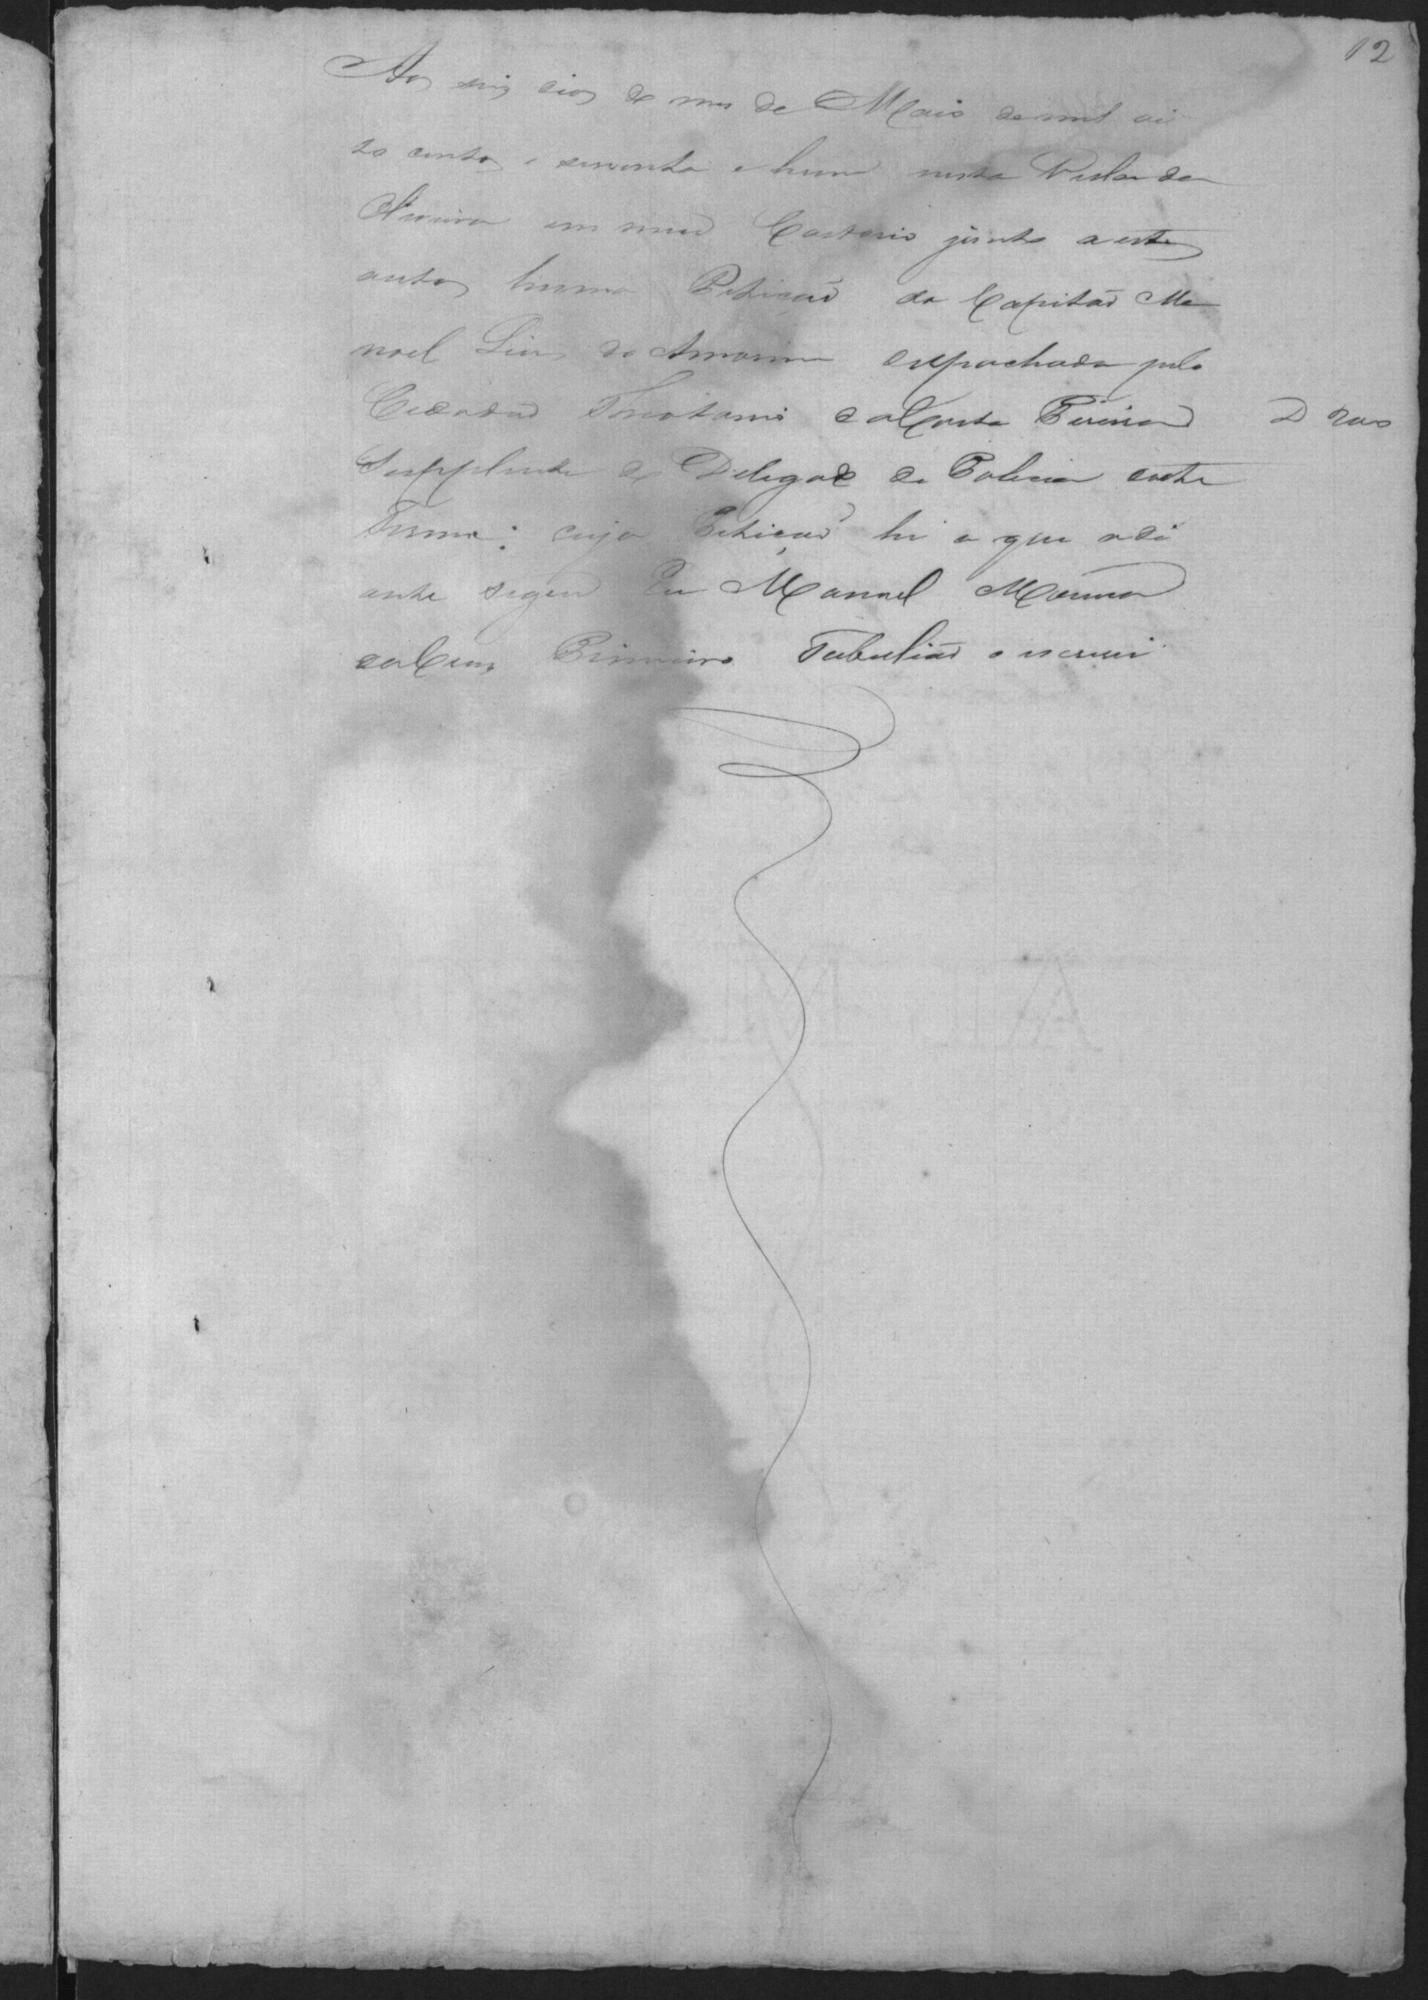 12
Aos seis dias do mes de Maio de mil oi
to centos e secenta e hum nesta Villa da
em meu Cartorio junto a estes
autos huma Petição do Capitão Ma
noel de Amorim despachada pelo
Cidadão da Costa Pereira D 200
Supplente do Delegado de Policia deste
Termo; cuja Petição he a que adi
ante segue Eu Manoel Moreira
da Cruz Primeiro Tabelião o escrevi